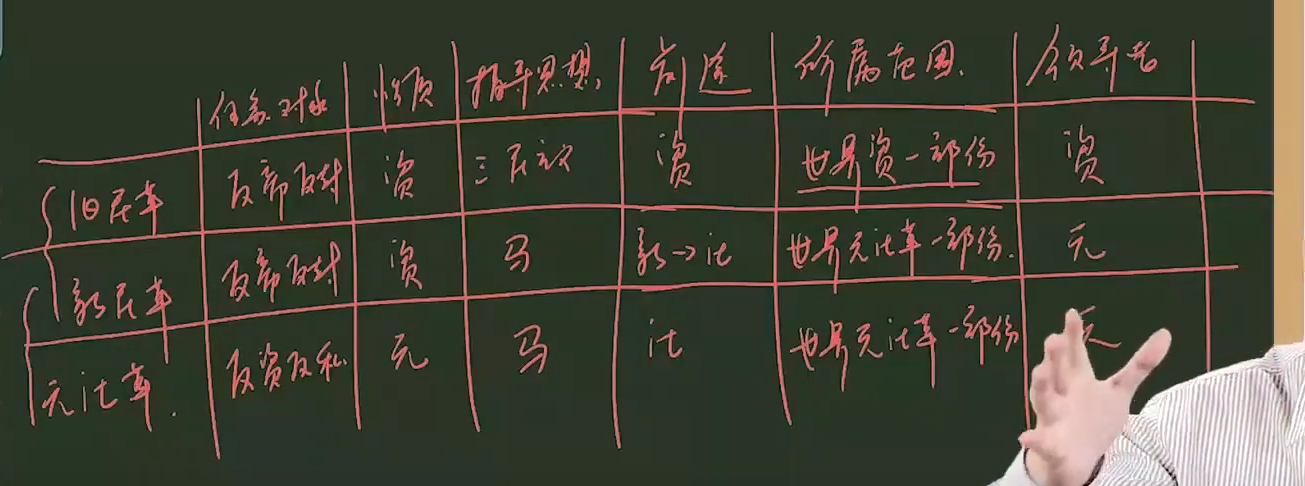 任务对象 性质 指导思想 前途 所属范围 领导者
旧民革 反帝反封 资 三民主义 资 世界资一部份 资
新民革 反帝反封 资 马 新→社 世界无社革一部份 无
无社革 反资反私 无 马 社 世界无社革一部份 无